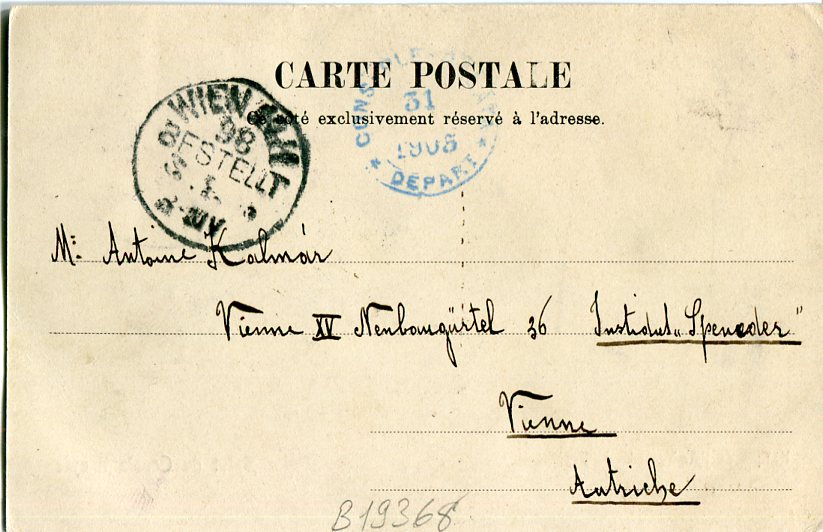 CARTE POSTALE
Ce côté exclusivement réservé à l'adresse.
31
1903
* DEPART *
WIEN
98
BESTELLT
Mr. Antoine Kalmár
Vienne XV Neubaugürtel 36 Institut „Speneder"
Vienne
Autriche
B19368